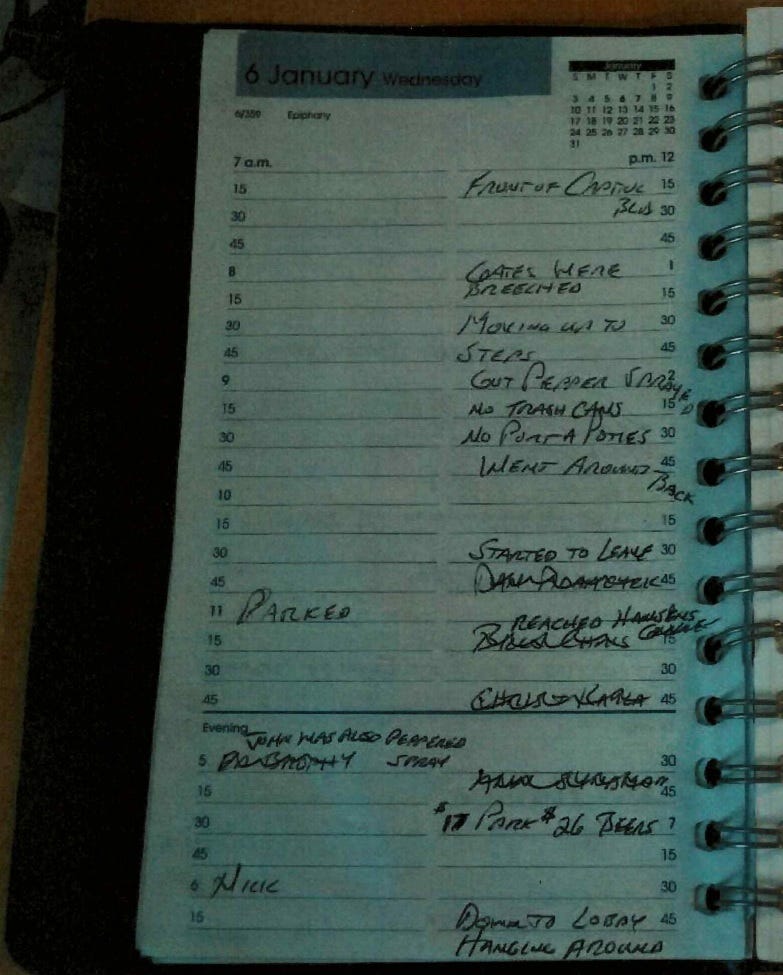 6 January Wednesday
January
S M T W T F S
1 2
3 4 5 6 7 8 9
10 11 12 13 14 15 16
17 18 19 20 21 22 23
24 25 26 27 28 29 30
31
6/359 Epiphany
7 a.m.
p.m. 12
15 FRONT OF CAPITOL 15
30 BLD 30
45 45
8 GATES WERE 1
BREECHED
15 15
30 MOVING UP TO 30
45 STEPS 45
9 GOT PEPPER SPRAYED 2
15 NO TRASH CANS 15
30 NO PORT A POTIES 30
45 WENT AROUND 45
BACK
10
15 15
30 STARTED TO LEAVE 30
45 45
11 PARKED REACHED
15 15
30 30
45 45
Evening
JOHN WAS ALSO PEPPERED
5 SPRAY 30
15 45
30 $17 PARK $26 BEERS 7
45 15
6 NICK 30
15 DOWN TO LOBBY 45
HANGING AROUND